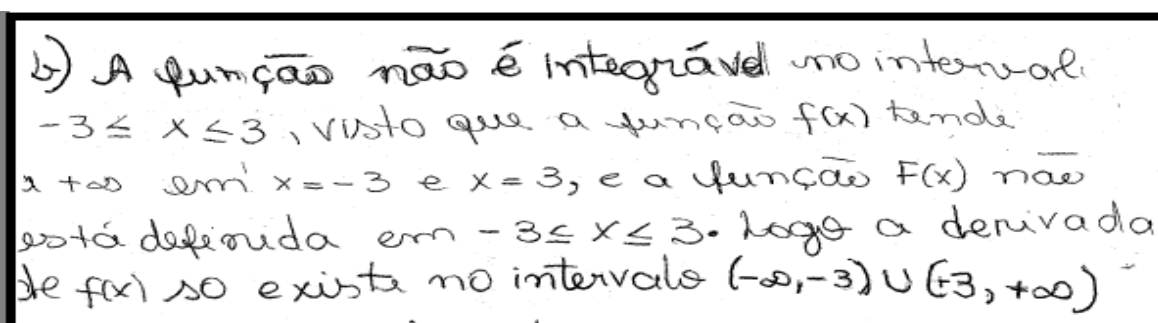 b) A função não é integrável no interval
-3 ≤ x ≤ 3, visto que a função f(x) tende
a +∞ em x = -3 e x = 3, e a função F(x) não
está definida em -3 ≤ x ≤ 3. Logo a derivada
de f(x) so existe no intervalo (-∞,-3) U (+3, +∞)